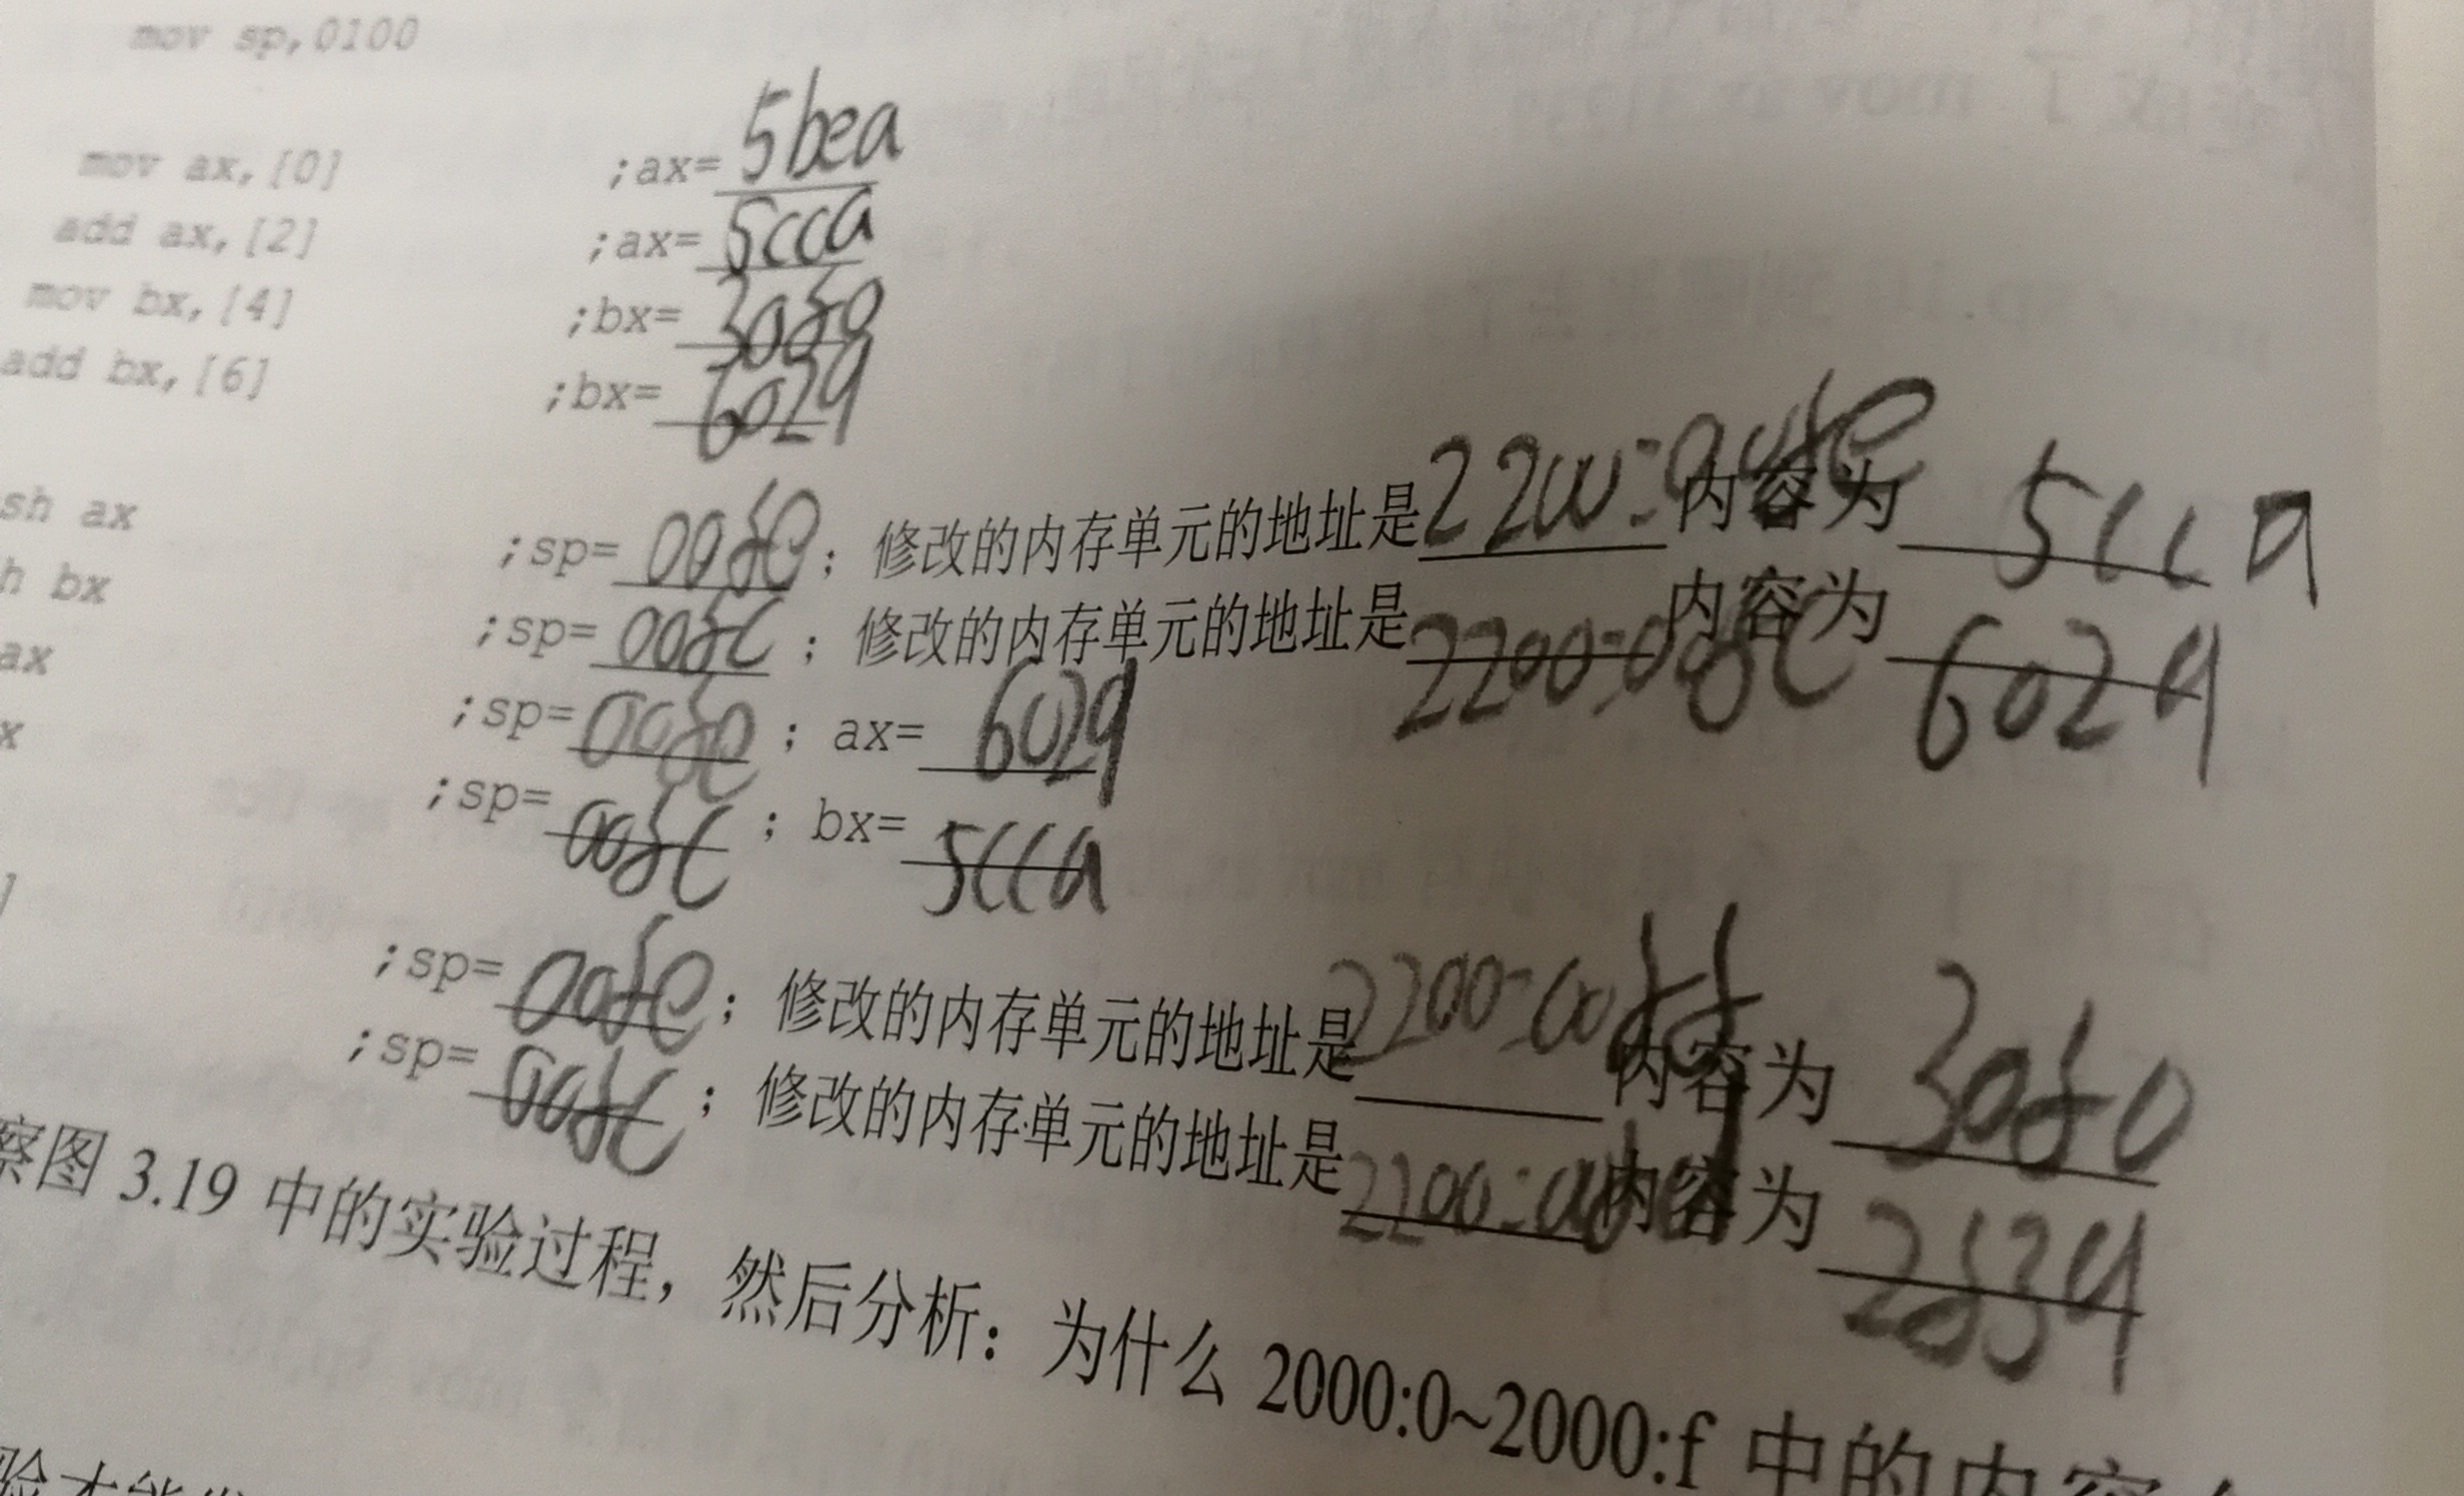 mov sp,0100
mov ax,[0] ;ax= 5bea
add ax,[2] ;ax= 5cca
mov bx,[4] ;bx= 30f0
add bx,[6] ;bx= 6029
sh ax ;sp= 00fe ; 修改的内存单元的地址是 2200:00fe 内容为 5cca
h bx ;sp= 00fc ; 修改的内存单元的地址是 2200:00fc 内容为 6029
ax ;sp= 00fe ; ax= 6029
x ;sp= 00fc ; bx= 5cca
] ;sp= 00fe ; 修改的内存单元的地址是 2200:00ff 内容为 30f0
;sp= 00fc ; 修改的内存单元的地址是 内容为 2f39
察图 3.19 中的实验过程，然后分析：为什么 2000:0~2000:f 中的内容
验才能